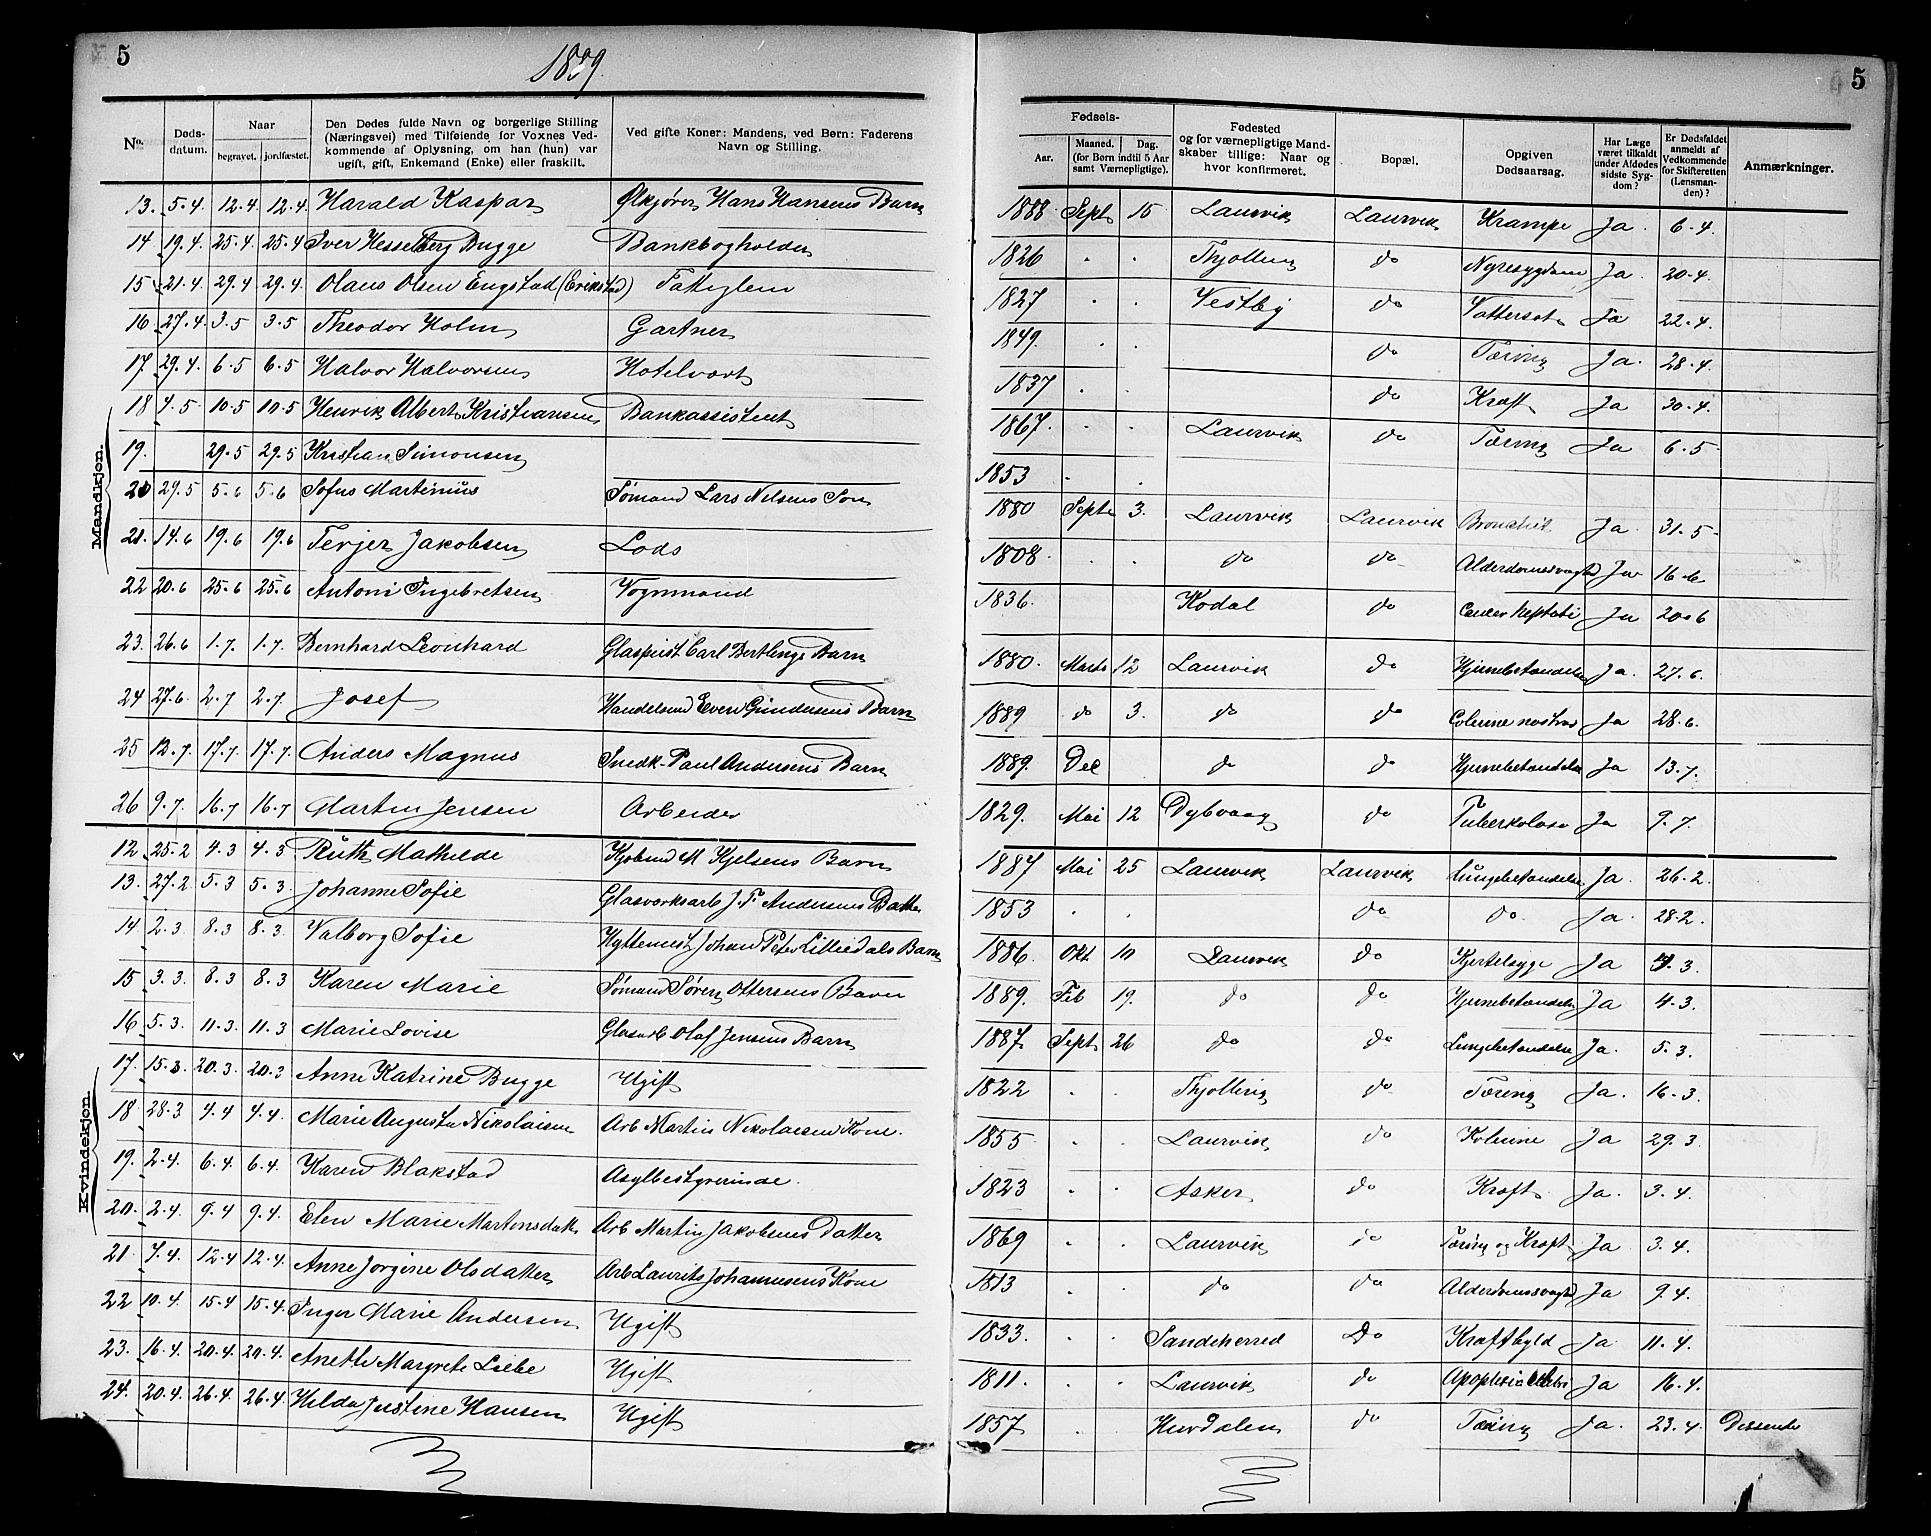 5
1889.
5
No.
Døds-datum.
Naar
begravet.
jordfæstet.
Den Dødes fulde Navn og borgerlige Stilling (Næringsvei) med Tilføiende for Voxnes Vedkommende af Oplysning, om han (hun) var ugift, gift, Enkemand (Enke) eller fraskilt.
Ved gifte Koner: Mandens, ved Børn: Faderens Navn og Stilling.
Fødsels-
Aar.
Maaned. Dag.
(for Børn indtil 5 Aar samt Værnepligtige).
Fødested og for værnepligtige Mandskaber tillige: Naar og hvor konfirmeret.
Bopæl.
Opgiven Dødsaarsag.
Har Læge været tilkaldt under Afdødes sidste Sygdom?
Er Dødsfaldet anmeldt af Vedkommende for Skifteretten (Lensmanden)?
Anmærkninger.
Mandkjøn.
13. 5.4. 12.4. 12.4. Harald Kaspar Ølkjører Hans Hansens Barn 1888 Sept 15 Laurvik Laurvik Krampe Ja. 6.4.
14 19.4. 25.4 25.4 Iver Hesselberg Bugge Bankbogholder 1826 . . Thjølling do Nyresygdom Ja. 20.4.
15 21.4. 29.4 29.4. Olaus Olsen Engstad (Erikstad) Fattiglem 1827 . . Vestby do Vattersot Ja 22.4.
16 27.4. 3.5 3.5 Theodor Holm Gartner 1849. . . do Tæring Ja. 28.4.
17. 29.4. 6.5 6.5 Halvor Halvorsen Hotelvært 1837 . . do Kræft Ja 30.4.
18 4.5 10.5 10.5 Henrik Albert Kristiansen Bankassistent 1867. . . Laurvik do Tæring Ja 6.5
19. 29.5 29.5 Kristian Simonsen 1853 . .
20 29.5 5.6 5.6 Sofus Martinius Sømand Lars Nilsens Søn 1880 Septe 3. Laurvik Laurvik Ja. 31.5
21. 14.6 19.6 19.6 Terjer Jakobsen Lods 1808. . . do do Alderdomssvaghed Ja 16.6
22 20.6 25.6 25.6 Antoni Ingebretsen Vognmand 1836. Kodal do Cancer hepatis Ja 20.6
23. 26.6 1.7. 1.7. Bernhard Leonhard Glaspust Carl Bertlings Barn 1880. Marts 12 Laurvik do Hjernebetændelse Ja. 27.6.
24 27.6 2.7 2.7. Josef Handelsmd Even Gundersens Barn 1889 do 3. do do Colerine nostras Ja 28.6.
25 12.7. 17.7. 17.7. Anders Magnus Snedk. Paul Andersens Barn 1889. Dec do do Hjernebetændelse Ja 13.7.
26 9.7. 16.7 16.7 Martin Jensen Arbeider 1829. Mai 12 Dybvaag do Tuberkulose Ja 9.7.
Kvindekjøn.
12 25.2 4.3 4.3 Ruth Mathilde Kjøbmd M Kjelsens Barn 1887 Mai 25 Laurvik Laurvik Lungebetændelse Ja. 26.2.
13. 27.2 5.3 5.3. Johanne Sofie Glasværksarb J. F. Andersens Datter 1853 . . do do. Ja. 28.2.
14 2.3. 8.3 8.3. Valborg Sofie Hyttemest Johan Peter Lilliedals Barn 1886. Okt 10 Laurvik do Kjertelsyge Ja 3.
15 3.3. 8.3 8.3 Karen Marie Sømand Søren Ottersens Barn 1889. Feb 19. do do Hjernebetændelse Ja 4.3.
16 5.3. 11.3. 11.3 Marie Lovise Glasarb Olaf Jensens Barn 1887 Sept 26 do do Lungebetændelse Ja. 5.3.
17. 15.3. 20.3. 20.3 Anne Katrine Bugge Ugift 1822 . . Thjølling do Tæring Ja. 16.3.
18 28.3 4.4 4.4. Marie Augusta Nikolaisen Arb Martin Nikolaisens Kone. 1855 . . Laurvik do Kolerine Ja 29.3
19. 2.4. 6.4. 6.4. Karen Blakstad Asylbestyrerinde. 1823 . . Asker do Kræft Ja. 3.4.
20. 2.4. 9.4 9.4. Elen Marie Martinsdatter Arb Martin Jakobsens Datter 1869 . . Laurvik do Tæring og Kræft Ja 3.4.
21 7.4. 12.4 12.4. Anne Jørgine Olsdatter Arb Laurits Johannesens Kone 1813 . . do do Alderdomssvaghed Ja 9.4.
22 10.4. 15.4 15.4. Inger Marie Andersen Ugift 1833. . . Sandeherred Do Kræftbyld Ja. 11.4.
23. 16.4. 20.4. 20.4. Anette Margrete Liebe Ugift 1811 . . Laurvik do Apoplexia Ja 16.4.
24. 20.4. 26.4. 26.4. Hilda Justine Hansen Ugift 1857 . . Hurdalen do Tæring Ja. 23.4. Dissenter